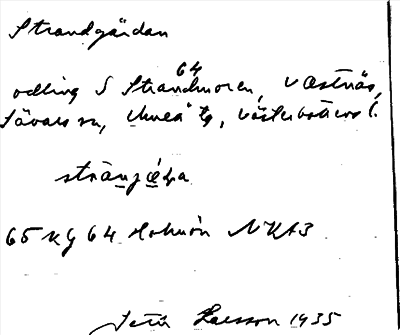 Strandgärdan
64
odling S Strandmoren, Västnäs,
Sävars sn, Umeå tg, Västerbottens l.
65 NG 64 Holmön NKA3
Petrus Larsson 1935